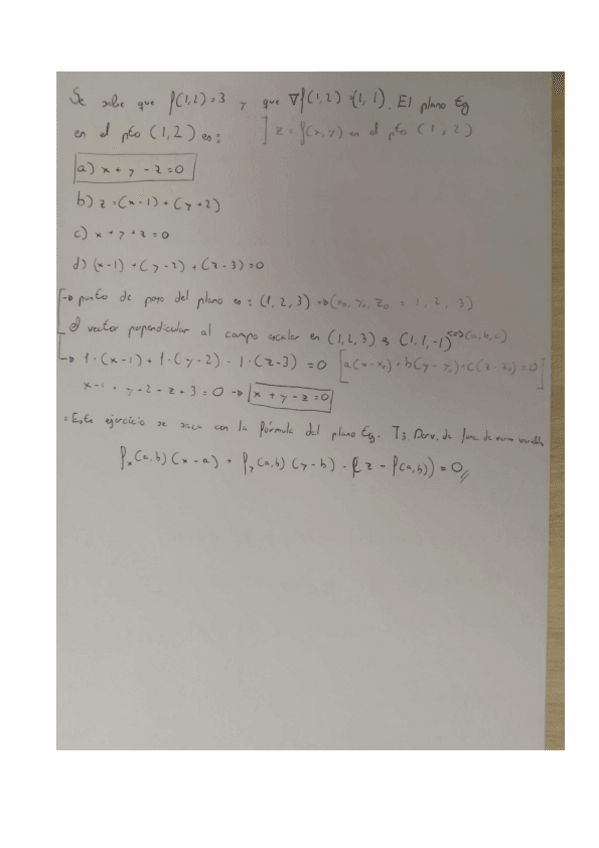 Se sabe que f(1,2)=3 y que ∇f(1,2)=(1,1). El plano tg
en el pto (1,2) es: ] z = f(x,y) en el pto (1,2)
a) x+y-z=0
b) z=(x-1)+(y+2)
c) x+y+z=0
d) (x-1)+(y-2)+(z-3)=0
→ punto de paso del plano es: (1,2,3) → (x₀, y₀, z₀ = 1, 2, 3)
el vector perpendicular al campo escalar en (1,2,3) es (1,1,-1) (a,b,c)
→ 1·(x-1)+1·(y-2)-1·(z-3)=0 [a(x-x₀)+b(y-y₀)+c(z-z₀)=0]
x-1+y-2-z+3=0 → x+y-z=0
Este ejercicio se saca con la fórmula del plano tg. T3. Derv. de func. de varias variables
fx(a,b)(x-a)+fy(a,b)(y-b)-(z-f(a,b))=0